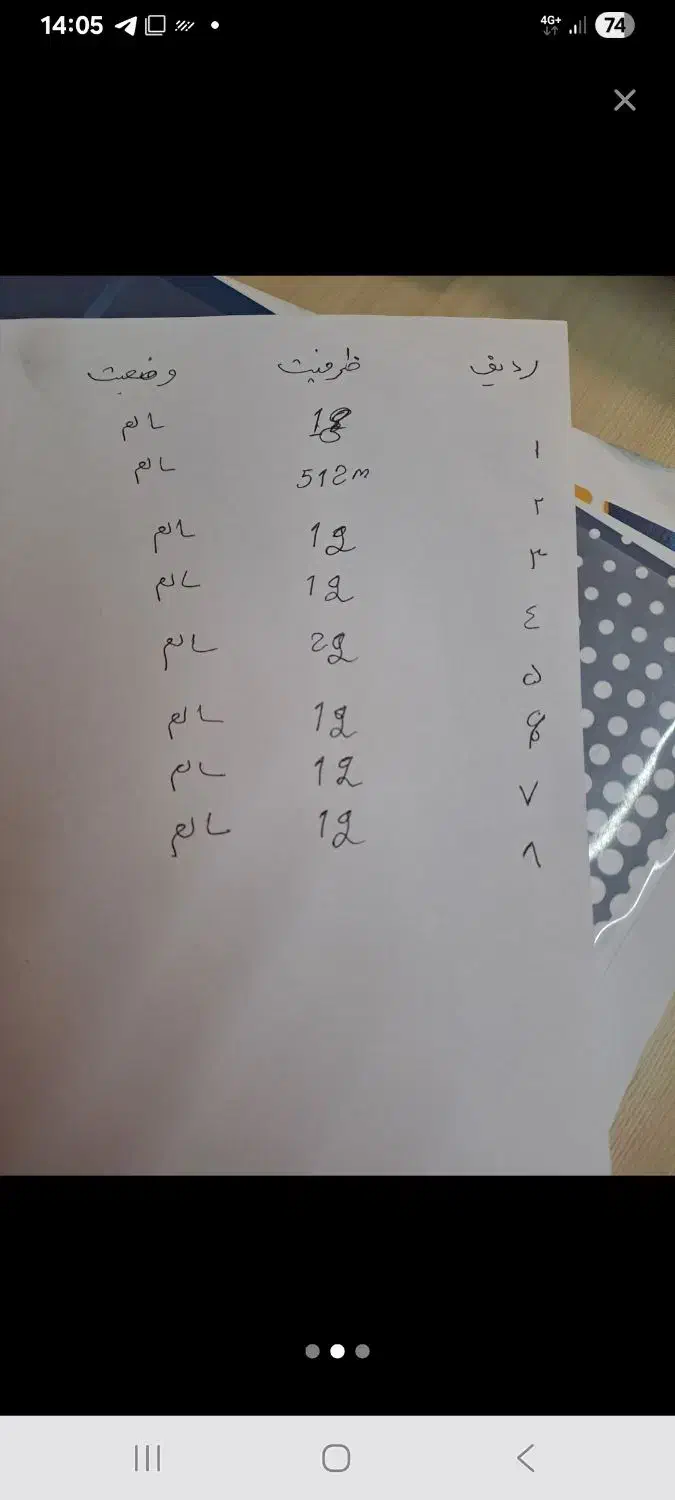 14:05 4G+ 74
ردیف ظرفیت وضعیت
۱ 1g سالم
۲ 512m سالم
۳ 1g سالم
٤ 1g سالم
۵ 2g سالم
۶ 1g سالم
۷ 1g سالم
۸ 1g سالم